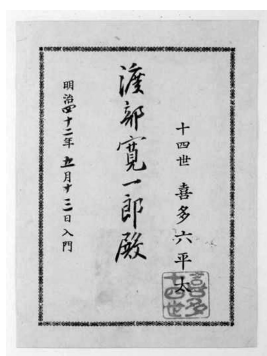 十四世 喜多六平太
渡部寛一郎殿
明治四十二年五月十三日入門
喜多
十四世